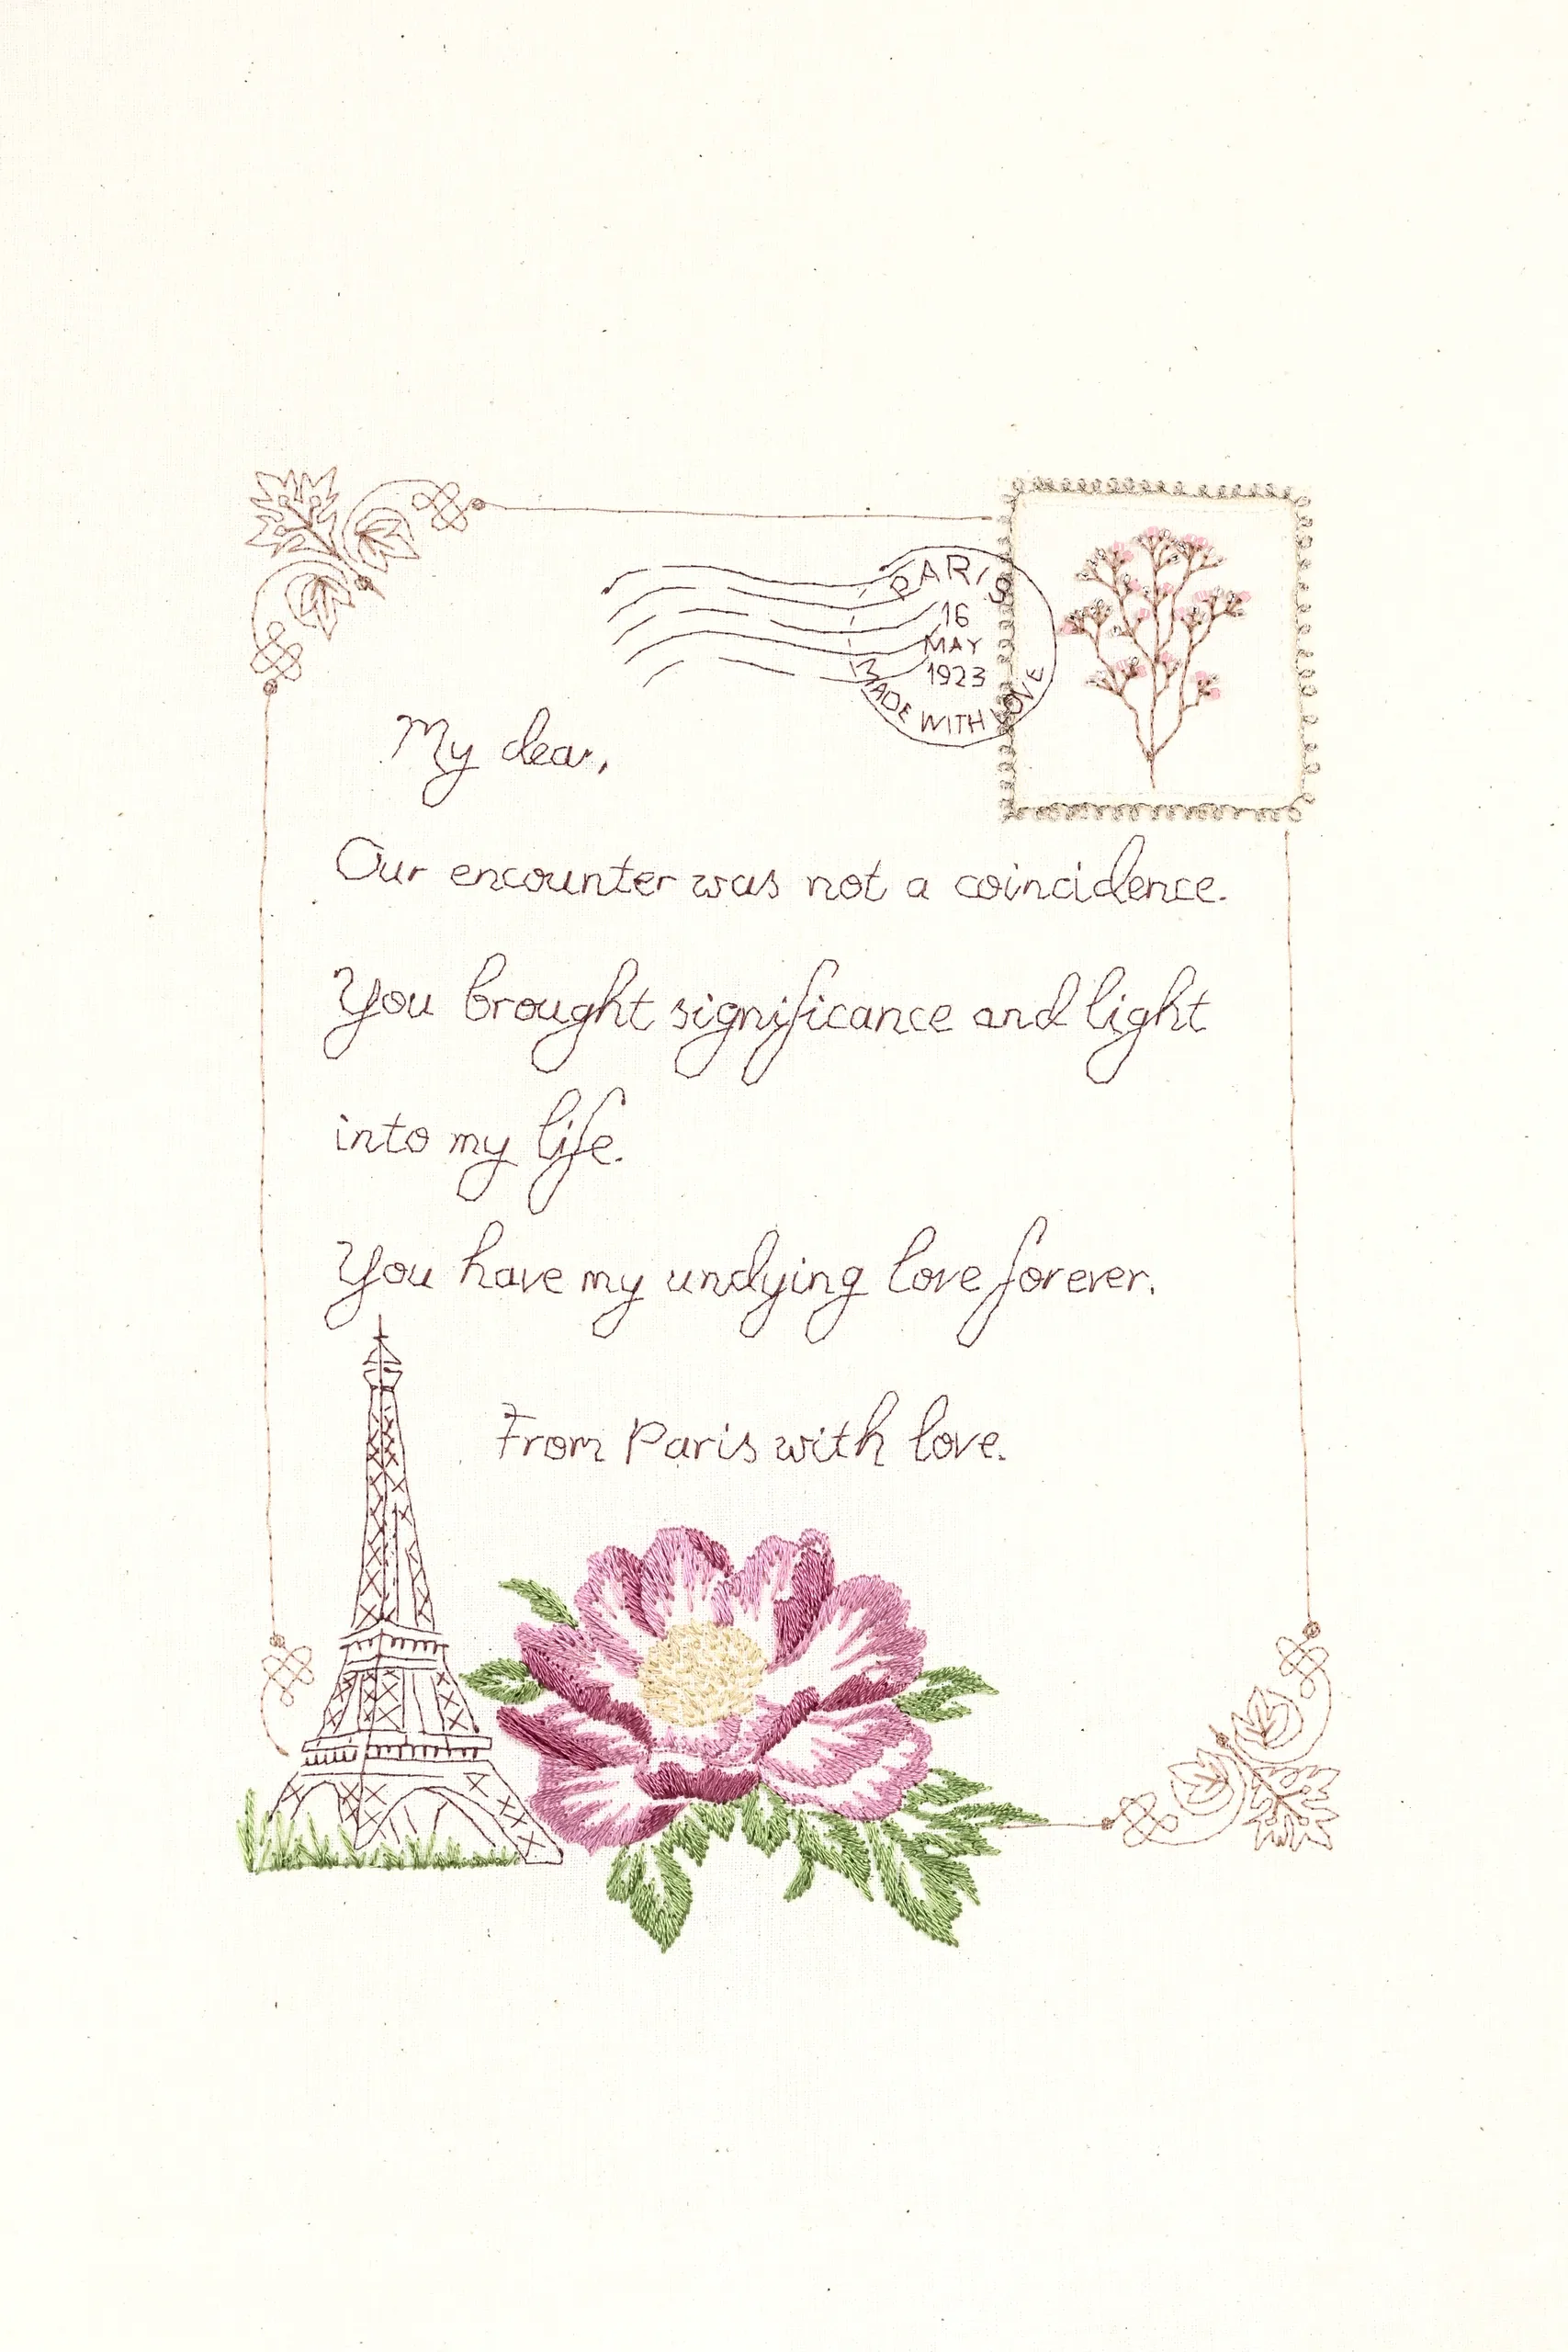 PARIS
16
MAY
1923
MADE WITH LOVE
My dear,
Our encounter was not a coincidence.
You brought significance and light
into my life.
You have my undying love forever.
From Paris with love.